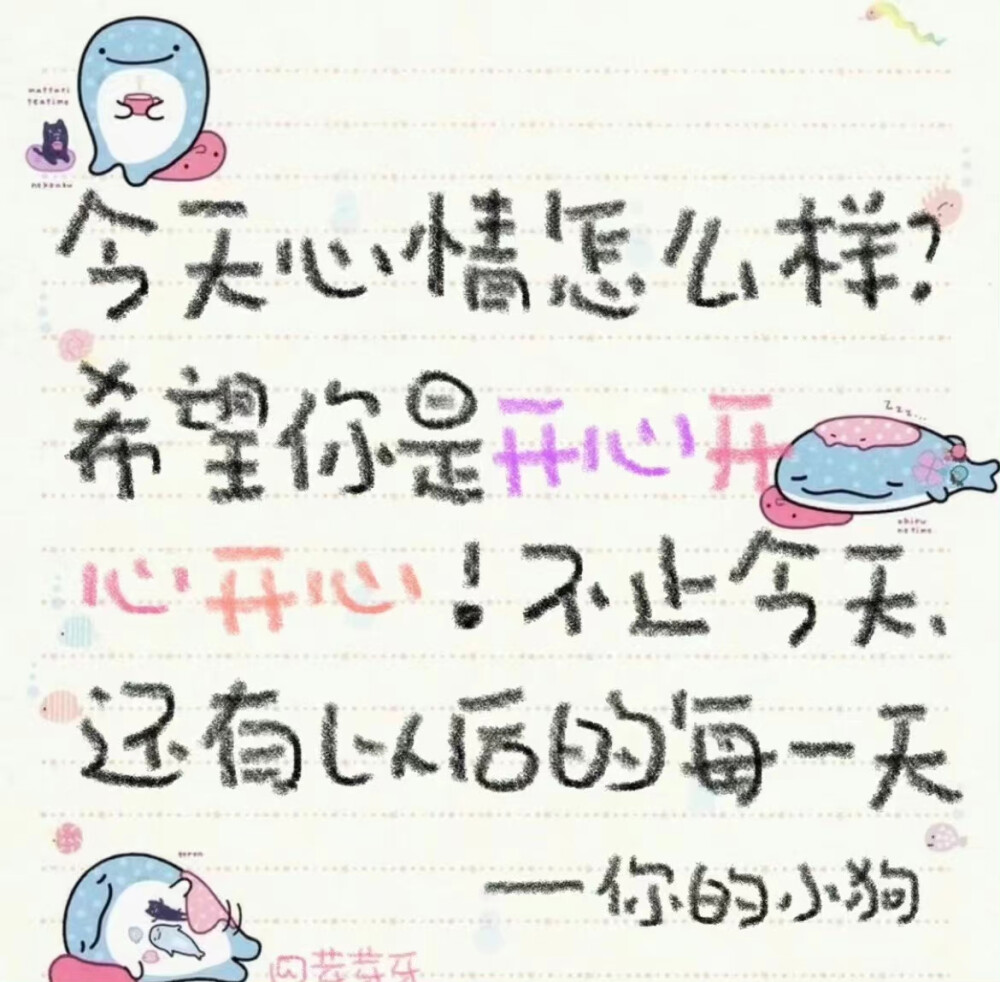 mattari
teatime
今天心情怎么样?
希望你是开心开
zzz...
心开心!不止今天、
还有以后的每一天
—你的小狗